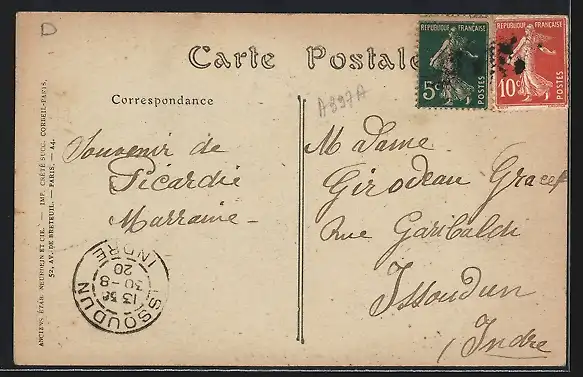 D
Carte Postale
RÉPUBLIQUE FRANÇAISE
5c
POSTES
RÉPUBLIQUE FRANÇAISE
10c
POSTES
A997A
Correspondance
Souvenir de
Picardie
Marraine -
Madame
Girodeau Grace
Rue Garibaldi
Issoudun
Indre
ISSOUDUN
INDRE
13 58
30 - 8
20
ANCIENS ÉTAB. NEURDEIN ET CIE. — IMP. CRÉTÉ SUCC. CORBEIL-PARIS.
52, AV. DE BRETEUIL. — PARIS. — A4.